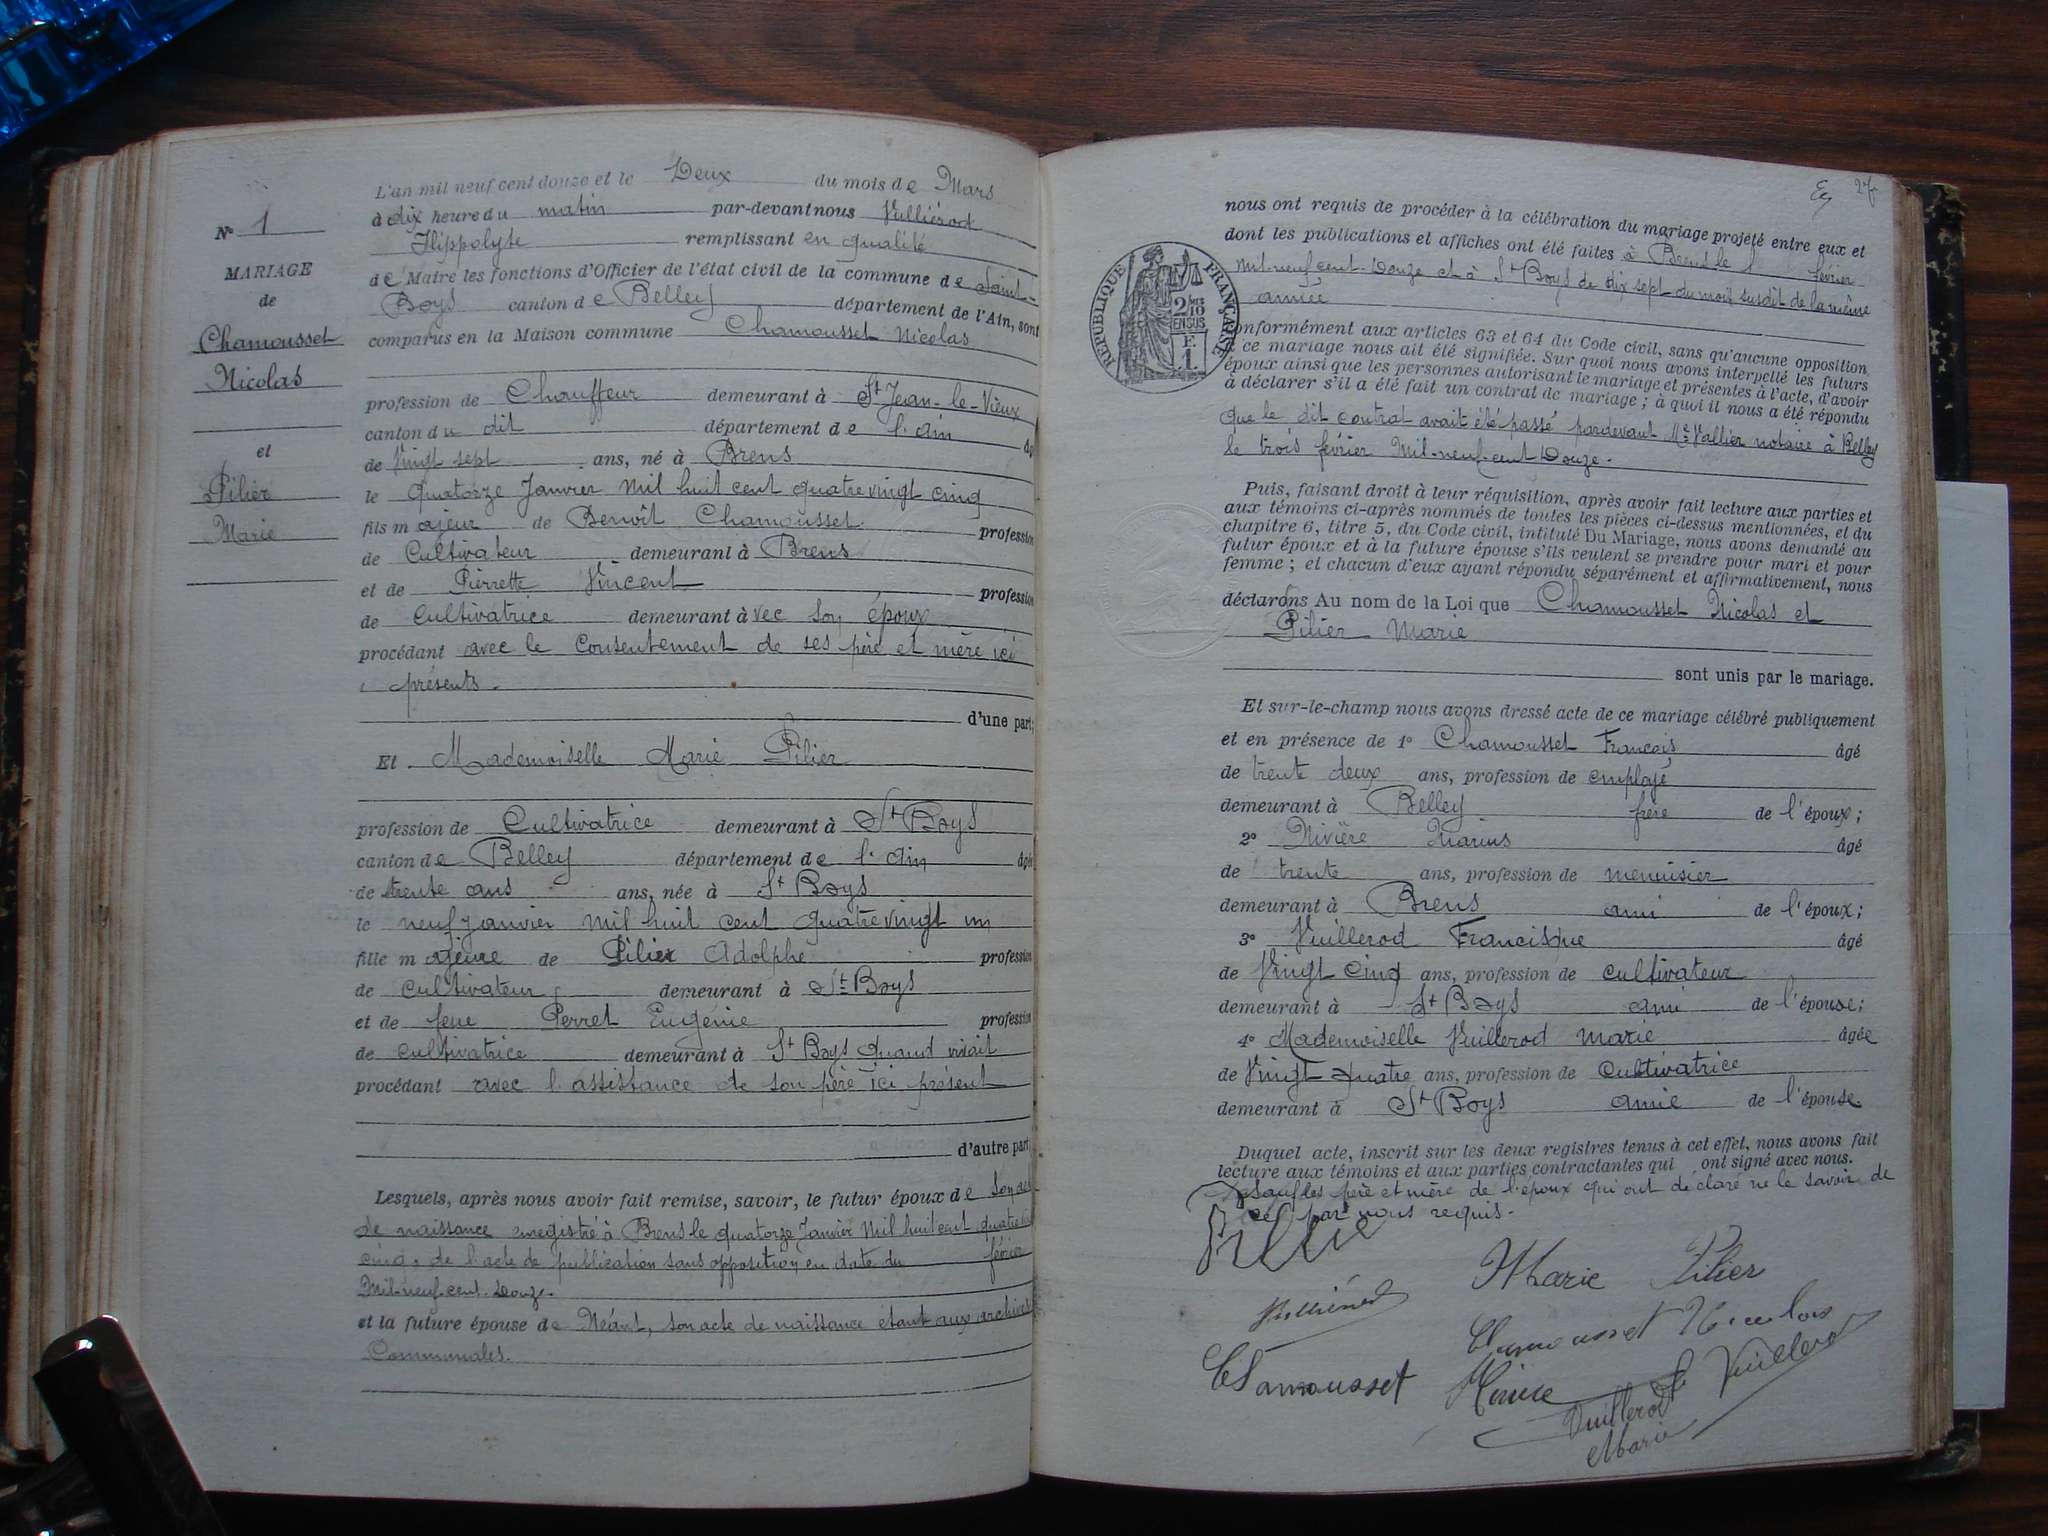 N° 1
MARIAGE
de
Chamousset
Nicolas
et
Pilier
Marie
L'an mil neuf cent douze et le Deux du mois de Mars
à dix heure du matin par-devant nous
Hippolyte remplissant en qualité
de Maire les fonctions d'Officier de l'état civil de la commune de Saint-
Boys canton de Belley département de l'Ain, sont
comparus en la Maison commune Chamousset Nicolas
profession de Chauffeur demeurant à St Jean-le-Vieux
canton du dit département de l'ain âgé
de Vingt sept ans, né à Brens
le quatorze Janvier mil huit cent quatre vingt cinq
fils majeur de Benoît Chamousset profession
de Cultivateur demeurant à Brens
et de Pierrette Vincent profession
de Cultivatrice demeurant avec son époux
procédant avec le Consentement de ses père et mère ici
présents.
d'une part;
Et Mademoiselle Marie Pilier
profession de Cultivatrice demeurant à St Boys
canton de Belley département de l'ain âgée
de trente ans ans, née à St Boys
le neuf janvier mil huit cent quatre vingt un
fille majeure de Pilier Adolphe profession
de Cultivateur demeurant à St Boys
et de feue Perret Eugénie profession
de cultivatrice demeurant à St Boys quand vivait
procédant avec l'assistance de son père ici présent
d'autre part
Lesquels, après nous avoir fait remise, savoir, le futur époux de son acte
de naissance enregistré à Brens le quatorze Janvier Mil huit cent quatre
cinq, de l'acte de publication sans opposition en date du février
Mil-neuf-cent-Douze.
et la future épouse de Néant, son acte de naissance étant aux archives
Communales.
27
nous ont requis de procéder à la célébration du mariage projeté entre eux et
dont les publications et affiches ont été faites à Brens le février
mil-neuf cent-Douze et à St Boys de dix sept du mois susdit de la même
année
RÉPUBLIQUE FRANÇAISE
2/10 EN SUS
F. 1
conformément aux articles 63 et 64 du Code civil, sans qu'aucune opposition
à ce mariage nous ait été signifiée. Sur quoi nous avons interpellé les futurs
époux ainsi que les personnes autorisant le mariage et présentes à l'acte, d'avoir
à déclarer s'il a été fait un contrat de mariage; à quoi il nous a été répondu
que le dit contrat avait été passé pardevant Me Vallier notaire à Belley
le trois février Mil-neuf-cent Douze.
Puis, faisant droit à leur réquisition, après avoir fait lecture aux parties et
aux témoins ci-après nommés de toutes les pièces ci-dessus mentionnées, et du
chapitre 6, titre 5, du Code civil, intitulé Du Mariage, nous avons demandé au
futur époux et à la future épouse s'ils veulent se prendre pour mari et pour
femme; et chacun d'eux ayant répondu séparément et affirmativement, nous
déclarons Au nom de la Loi que Chamousset Nicolas et
Pilier Marie
sont unis par le mariage.
Et sur-le-champ nous avons dressé acte de ce mariage célébré publiquement
et en présence de 1° Chamousset Francois âgé
de trente deux ans, profession de employé
demeurant à Belley frère de l'époux;
2° Rivière Marius âgé
de trente ans, profession de menuisier
demeurant à Brens ami de l'époux;
3° Vuillerod Francisque âgé
de Vingt cinq ans, profession de cultivateur
demeurant à St Boys ami de l'épouse;
4° Mademoiselle Vuillerod Marie âgée
de Vingt quatre ans, profession de Cultivatrice
demeurant à St Boys amie de l'épouse
Duquel acte, inscrit sur les deux registres tenus à cet effet, nous avons fait
lecture aux témoins et aux parties contractantes qui ont signé avec nous.
sauf les père et mère de l'époux qui ont déclaré ne le savoir de
ce par nous requis.
Marie Pilier
Chamousset Nicolas
Chamousset
Vuillerod
Vuillerod
Marie